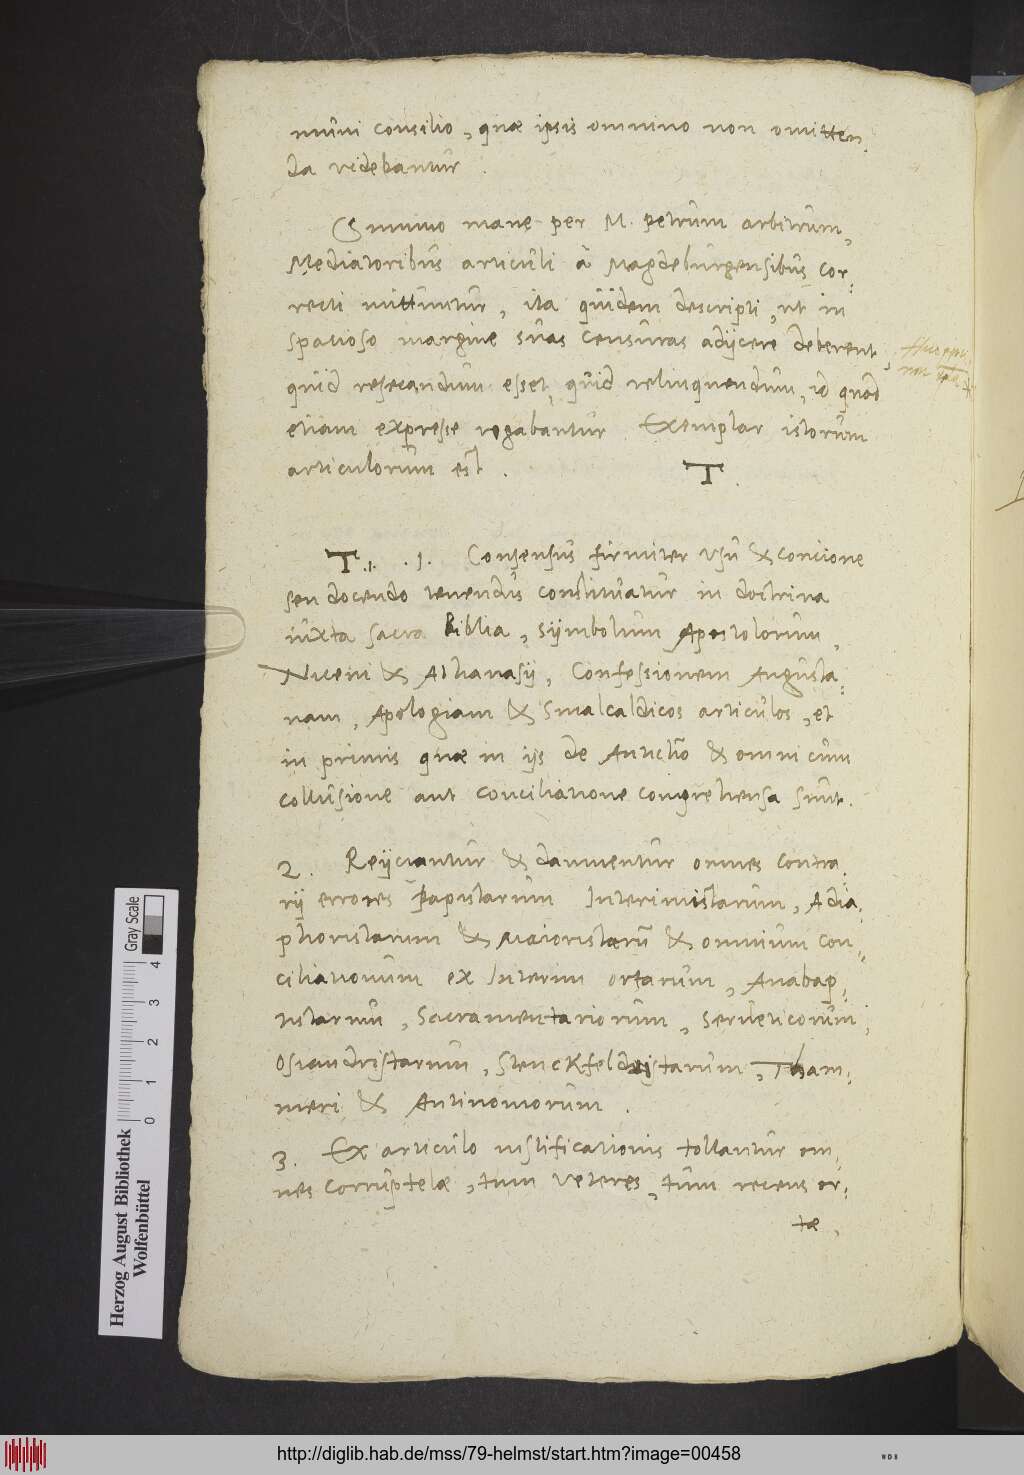 muni consilio, quae ipsis omnino non omitten
da videbantur.
Summo mane per M. Petrum arbitrum,
Mediatoribus articuli à Magdeburgensibus cor-
recti mittuntur, ita quidem descripti, ut in
spatioso margine suas censuras adijcere deberent,
quid resecandum esset, quid relinquendum, id quod
etiam expresse rogabantur Exemplar istorum
articulorum est. T.
T. 1. Consensus firmiter usu & concione
seu docendo tenendus constituatur in doctrina
iuxta sacra Biblia, Symbolum Apostolorum,
Niceni & Athanasij, Confessionem Augusta-
nam, Apologiam & Smalcaldicos articulos, et
in primis quae in ijs de Antichro & omni cum
collusione aut conciliatione comprehensa sunt.
2. Reijciantur & damnentur omnes contra
rij errores Papistarum Interimistarum, Adia-
phoristarum & Maioristarū & omnium con-
ciliationum ex Interim ortarum, Anabap-
tistarum, Sacramentariorum, Serueticorum,
Osiandristarum, Stenckfeldistarum, Tham-
meri & Antinomorum.
3. Ex articulo iustificationis tollantur om-
nes corruptelae, tum veteres, tum recens or-
tae,
Herzog August Bibliothek
Wolfenbüttel
Gray Scale
0 1 2 3 4
http://diglib.hab.de/mss/79-helmst/start.htm?image=00458